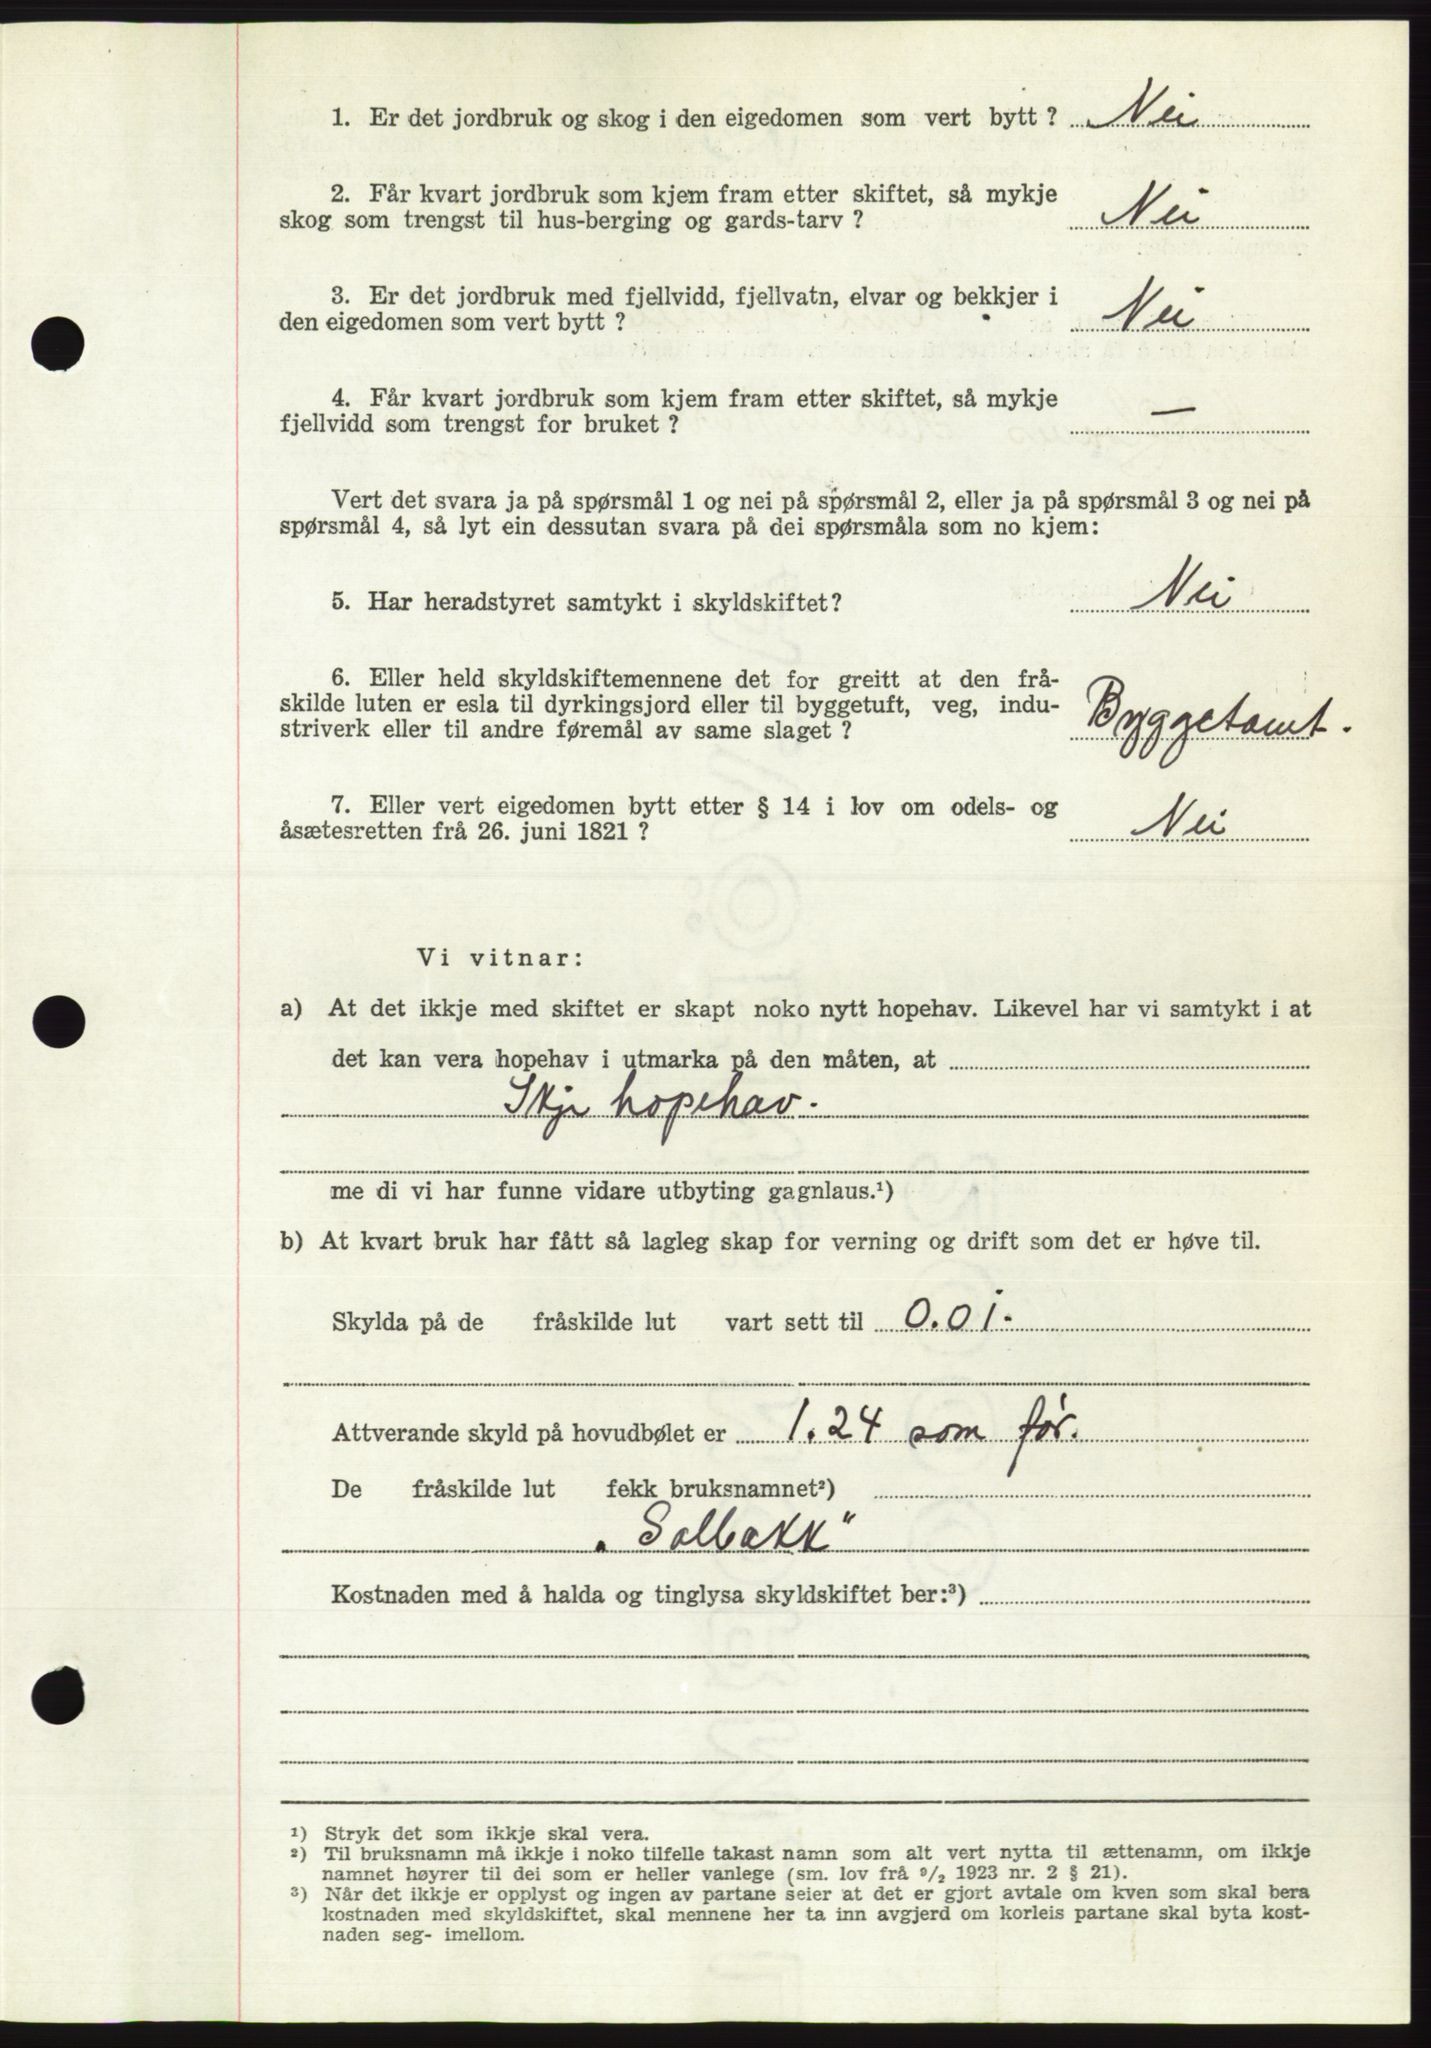 1. Er det jordbruk og skog i den eigedomen som vert bytt? Nei
2. Får kvart jordbruk som kjem fram etter skiftet, så mykje
skog som trengst til hus-berging og gards-tarv? Nei
3. Er det jordbruk med fjellvidd, fjellvatn, elvar og bekkjer i
den eigedomen som vert bytt? Nei
4. Får kvart jordbruk som kjem fram etter skiftet, så mykje
fjellvidd som trengst for bruket? —
Vert det svara ja på spørsmål 1 og nei på spørsmål 2, eller ja på spørsmål 3 og nei på
spørsmål 4, så lyt ein dessutan svara på dei spørsmåla som no kjem:
5. Har heradstyret samtykt i skyldskiftet? Nei
6. Eller held skyldskiftemennene det for greitt at den frå-
skilde luten er esla til dyrkingsjord eller til byggetuft, veg, indu-
striverk eller til andre føremål av same slaget? Byggetomt.
7. Eller vert eigedomen bytt etter § 14 i lov om odels- og
åsætesretten frå 26. juni 1821? Nei
Vi vitnar:
a) At det ikkje med skiftet er skapt noko nytt hopehav. Likevel har vi samtykt i at
det kan vera hopehav i utmarka på den måten, at
hopehav.
me di vi har funne vidare utbyting gagnlaus.¹)
b) At kvart bruk har fått så lagleg skap for verning og drift som det er høve til.
Skylda på de fråskilde lut vart sett til 0.01.
Attverande skyld på hovudbølet er 1.24 som før.
De fråskilde lut fekk bruksnamnet²)
„Solbakk"
Kostnaden med å halda og tinglysa skyldskiftet ber:³)
¹) Stryk det som ikkje skal vera.
²) Til bruksnamn må ikkje i noko tilfelle takast namn som alt vert nytta til ættenamn, om ikkje
namnet høyrer til dei som er heller vanlege (sm. lov frå ⁹/₂ 1923 nr. 2 § 21).
³) Når det ikkje er opplyst og ingen av partane seier at det er gjort avtale om kven som skal bera
kostnaden med skyldskiftet, skal mennene her ta inn avgjerd om korleis partane skal byta kost-
naden seg- imellom.